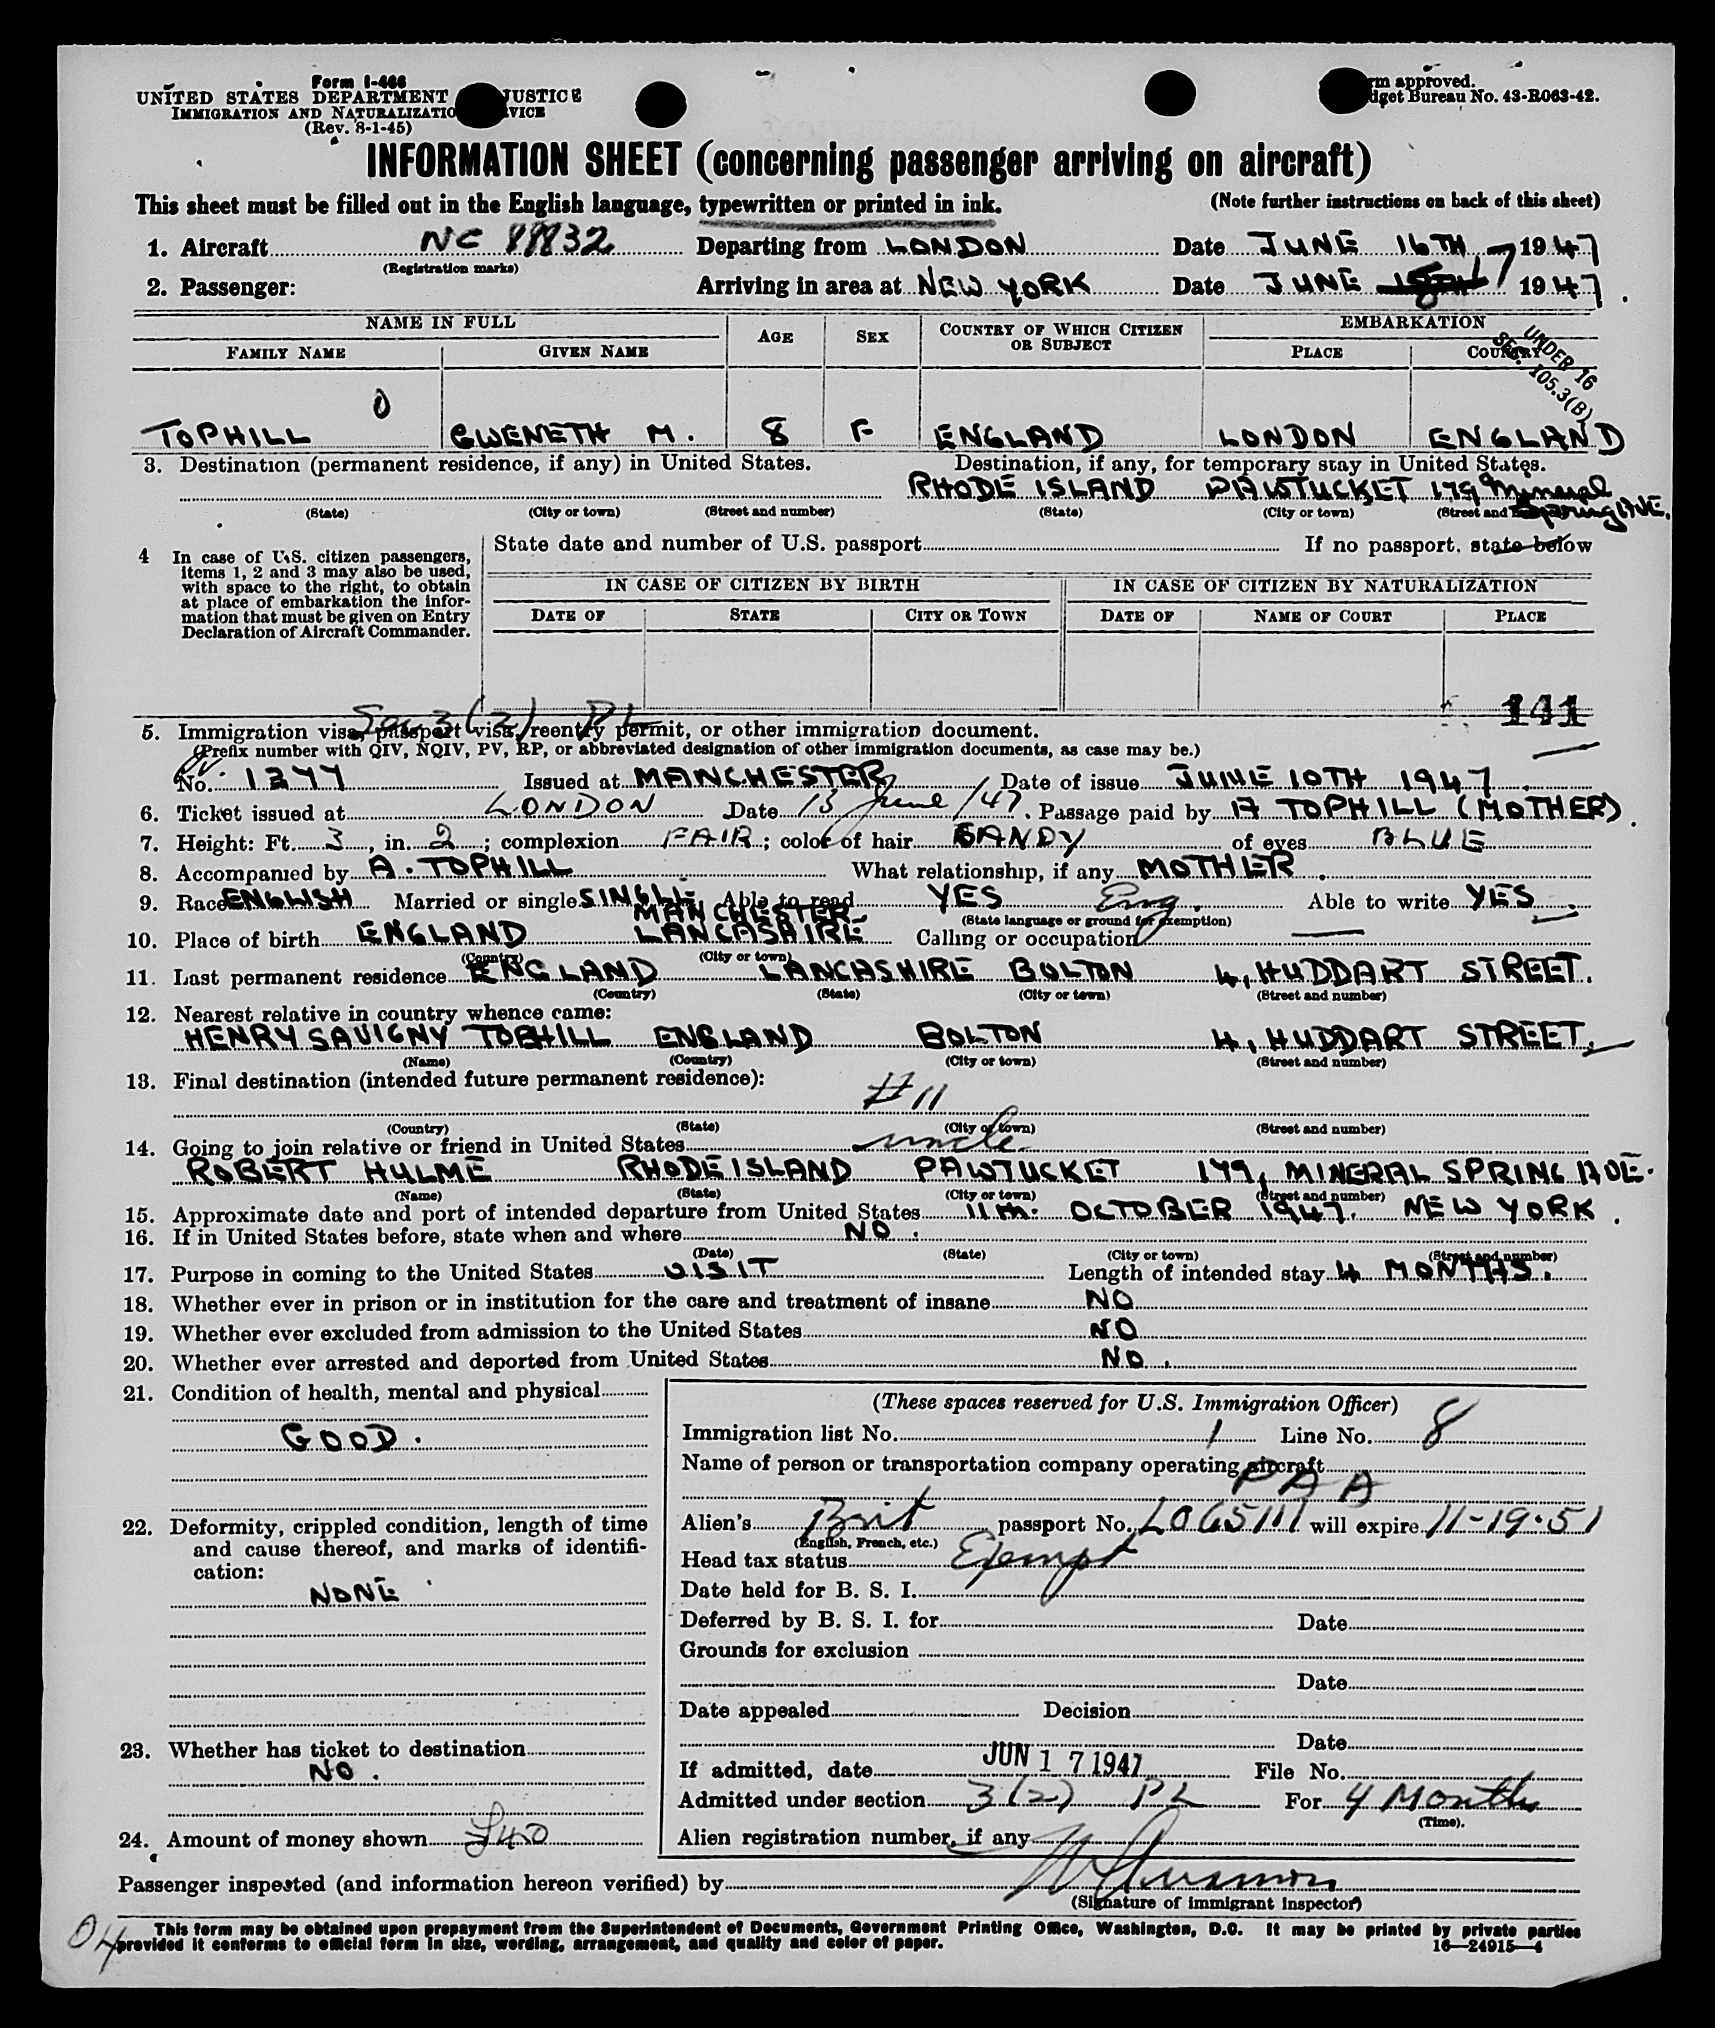 Form I-466
UNITED STATES DEPARTMENT JUSTICE
IMMIGRATION AND NATURALIZATIO VICE
(Rev. 8-1-45)
rm approved.
dget Bureau No. 43-R063-42.
INFORMATION SHEET (concerning passenger arriving on aircraft)
This sheet must be filled out in the English language, typewritten or printed in ink. (Note further instructions on back of this sheet)
1. Aircraft NC 88832 Departing from LONDON Date JUNE 16TH 1947
(Registration marks)
2. Passenger: Arriving in area at NEW YORK Date JUNE 17 1947.
NAME IN FULL AGE SEX COUNTRY OF WHICH CITIZEN OR SUBJECT EMBARKATION
FAMILY NAME GIVEN NAME PLACE COUNTRY
UNDER 16
SEC. 105.3(B)
0
TOPHILL GWENETH M. 8 F ENGLAND LONDON ENGLAND
3. Destination (permanent residence, if any) in United States. Destination, if any, for temporary stay in United States.
RHODE ISLAND PAWTUCKET 179 Mineral Spring AVE.
(State) (City or town) (Street and number) (State) (City or town) (Street and
4 In case of U.S. citizen passengers, items 1, 2 and 3 may also be used, with space to the right, to obtain at place of embarkation the information that must be given on Entry Declaration of Aircraft Commander.
State date and number of U.S. passport If no passport, state below
IN CASE OF CITIZEN BY BIRTH IN CASE OF CITIZEN BY NATURALIZATION
DATE OF STATE CITY OR TOWN DATE OF NAME OF COURT PLACE
141
Sec 3(2) PL
5. Immigration visa, passport visa, reentry permit, or other immigration document.
(Prefix number with QIV, NQIV, PV, RP, or abbreviated designation of other immigration documents, as case may be.)
No. 1277 Issued at MANCHESTER Date of issue JUNE 10TH 1947
6. Ticket issued at LONDON Date 13 June /47. Passage paid by A TOPHILL (MOTHER).
7. Height: Ft. 3, in. 2; complexion FAIR; color of hair SANDY of eyes BLUE
8. Accompanied by A. TOPHILL What relationship, if any MOTHER.
9. Race ENGLISH Married or single SINGLE Able to read YES Eng. Able to write YES
(State language or ground for exemption)
10. Place of birth ENGLAND MANCHESTER LANCASHIRE Calling or occupation —
(Country) (City or town)
11. Last permanent residence ENGLAND LANCASHIRE BOLTON 4, HUDDART STREET.
(Country) (State) (City or town) (Street and number)
12. Nearest relative in country whence came:
HENRY SAVIGNY TOPHILL ENGLAND BOLTON 4, HUDDART STREET.
(Name) (Country) (City or town) (Street and number)
13. Final destination (intended future permanent residence):
#11
(Country) (State) (City or town) (Street and number)
14. Going to join relative or friend in United States uncle
ROBERT HULME RHODE ISLAND PAWTUCKET 179, MINERAL SPRING AVE.
(Name) (State) (City or town) (Street and number)
15. Approximate date and port of intended departure from United States 11th. OCTOBER 1947. NEW YORK.
16. If in United States before, state when and where NO.
(Date) (State) (City or town) (Street and number)
17. Purpose in coming to the United States VISIT Length of intended stay 4 MONTHS.
18. Whether ever in prison or in institution for the care and treatment of insane NO
19. Whether ever excluded from admission to the United States NO
20. Whether ever arrested and deported from United States NO.
21. Condition of health, mental and physical
GOOD.
22. Deformity, crippled condition, length of time and cause thereof, and marks of identification:
NONE
23. Whether has ticket to destination
NO.
24. Amount of money shown £40
(These spaces reserved for U.S. Immigration Officer)
Immigration list No. 1 Line No. 8
Name of person or transportation company operating aircraft
PAA
Alien's Brit passport No. L065111 will expire 11-19-51
(English, French, etc.)
Head tax status Exempt
Date held for B. S. I.
Deferred by B. S. I. for Date
Grounds for exclusion
Date
Date appealed Decision
Date
If admitted, date JUN 17 1947 File No.
Admitted under section 3(2) PL For 4 Months
(Time).
Alien registration number, if any
Passenger inspected (and information hereon verified) by
(Signature of immigrant inspector)
04
This form may be obtained upon prepayment from the Superintendent of Documents, Government Printing Office, Washington, D.C. It may be printed by private parties
provided it conforms to official form in size, wording, arrangement, and quality and color of paper. 16—24915—4